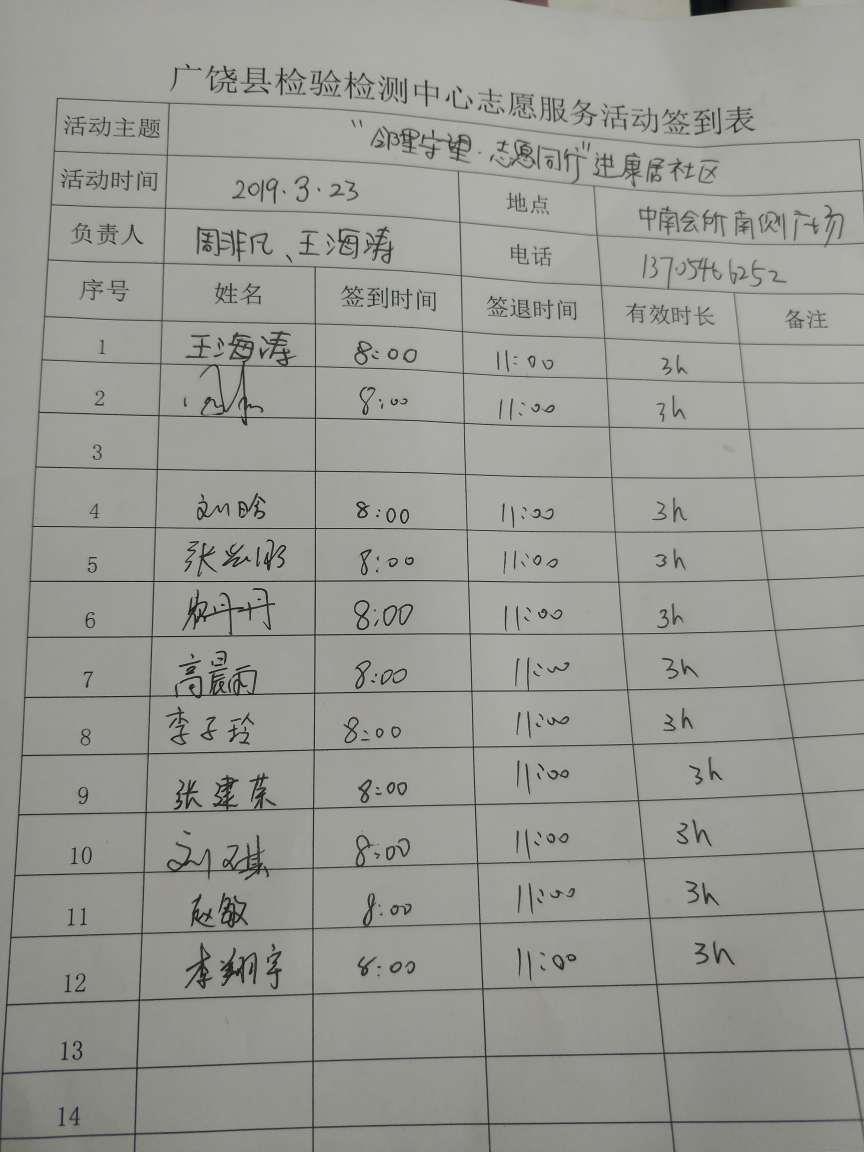 广饶县检验检测中心志愿服务活动签到表
活动主题 “邻里守望·志愿同行”进康居社区
活动时间 2019.3.23 地点 中南会所南侧广场
负责人 周非凡、王海涛 电话 13705466252
序号 姓名 签到时间 签退时间 有效时长 备注
1 王海涛 8:00 11:00 3h
2 8:00 11:00 3h
3
4 刘晗 8:00 11:00 3h
5 8:00 11:00 3h
6 8:00 11:00 3h
7 高晨雨 8:00 11:00 3h
8 李子玲 8:00 11:00 3h
9 张建荣 8:00 11:00 3h
10 8:00 11:00 3h
11 赵敏 8:00 11:00 3h
12 李翔宇 8:00 11:00 3h
13
14